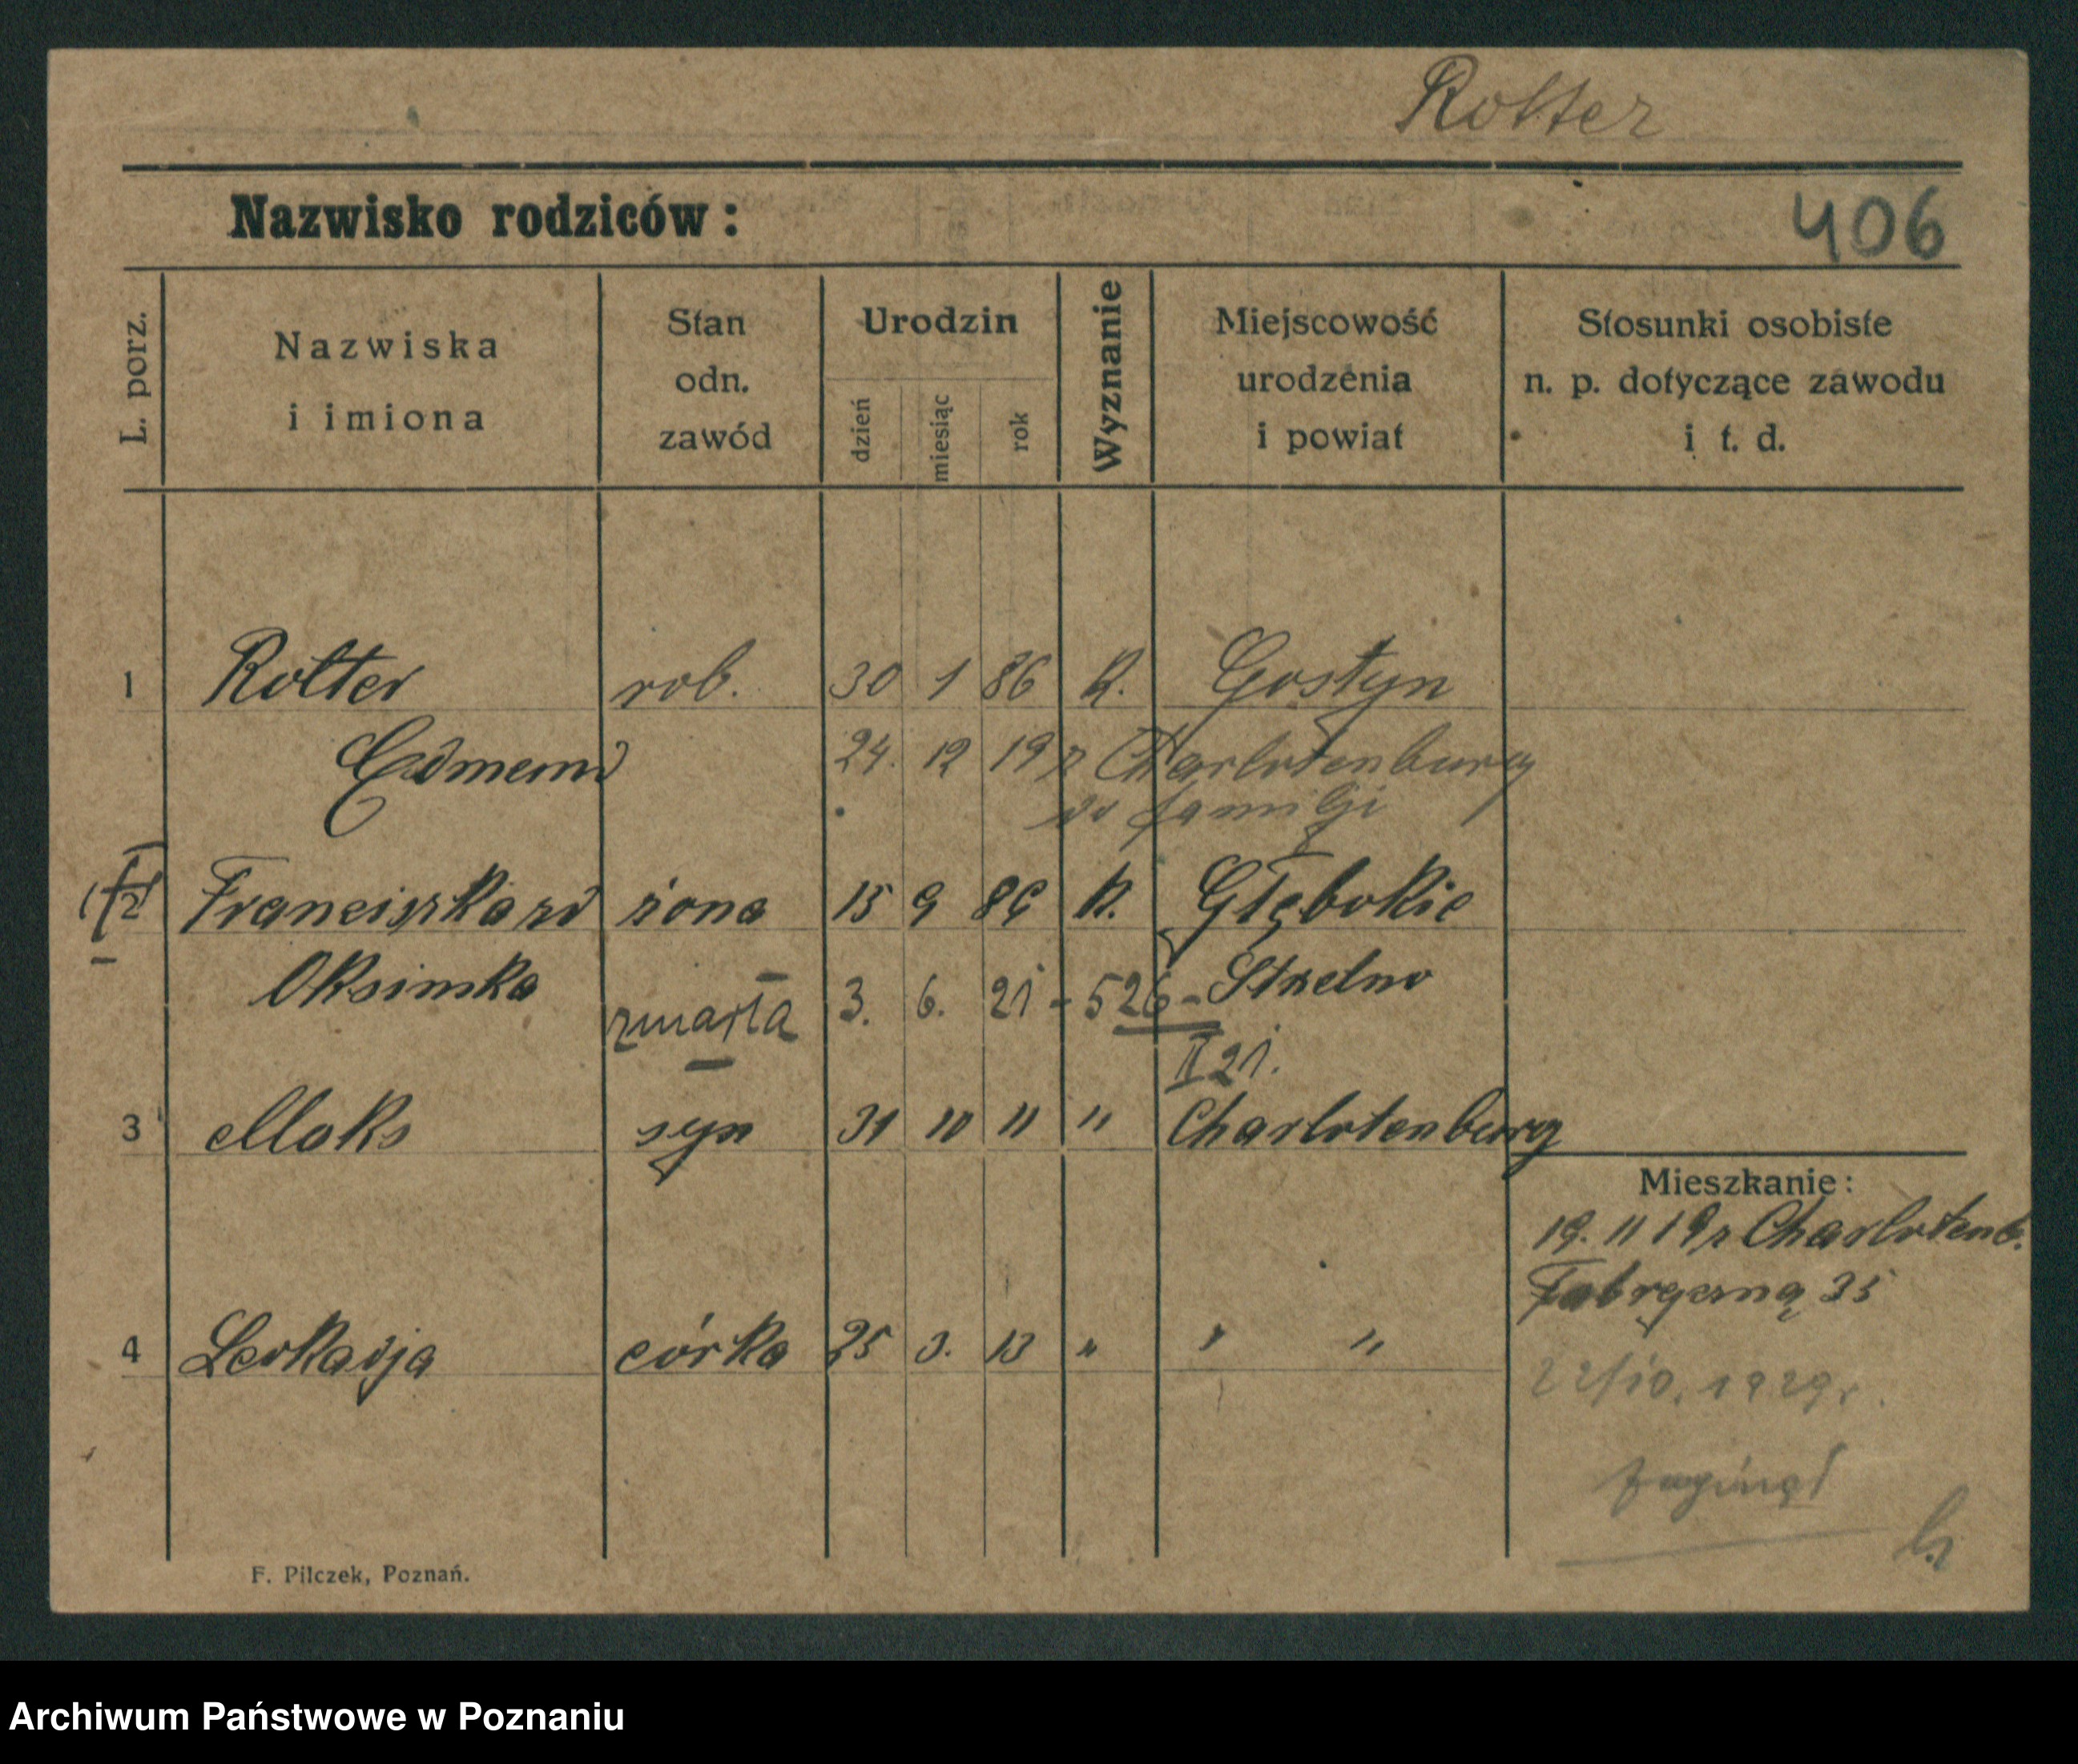 Rotter
Nazwisko rodziców:
406
L. porz.
Nazwiska
i imiona
Stan
odn.
zawód
Urodzin
dzień
miesiąc
rok
Wyznanie
Miejscowość
urodzenia
i powiat
Stosunki osobiste
n. p. dotyczące zawodu
i t. d.
1 Rotter rob. 30 1 86 K. Gostyn
Edmund 24. 12 19 z Charlotenburg
do familji
2 Franciszka zd żona 15 9 89 K. Głębokie
Oksinska Strelno
zmarła 3. 6. 21 - 526 -
II 21.
3 Maks syn 31 10 11 " Charlotenburg
Mieszkanie:
19. 11 19 z Charlotenb.
Fabryczną 35
4 Leokadja córka 25 3. 13 " " "
22/10. 1929 r.
zaginął
F. Pilczek, Poznań.
Archiwum Państwowe w Poznaniu